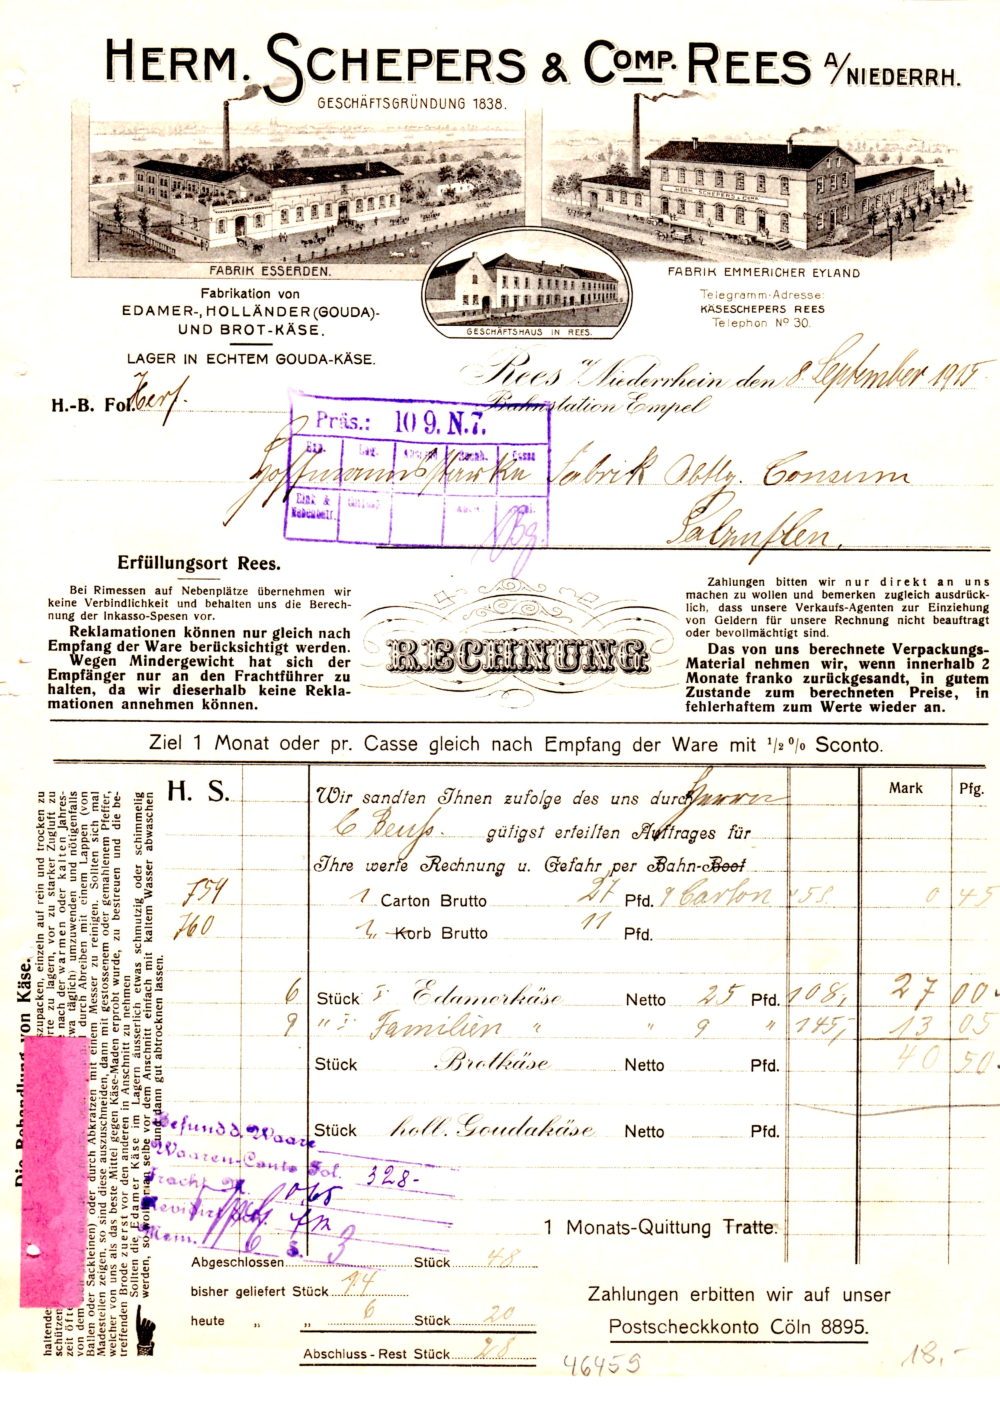 HERM. SCHEPERS & COMP. REES A/NIEDERRH.
GESCHÄFTSGRÜNDUNG 1838.
HERM. SCHEPERS & COMP.
FABRIK ESSERDEN.
FABRIK EMMERICHER EYLAND
GESCHÄFTSHAUS IN REES.
Fabrikation von
EDAMER-, HOLLÄNDER (GOUDA)-
UND BROT-KÄSE.
LAGER IN ECHTEM GOUDA-KÄSE.
Telegramm-Adresse:
KÄSESCHEPERS REES
Telephon No 30.
Rees a/Niederrhein den 8. September 1915
Bahnstation Empel
H.-B. Fol. Herf.
Präs.: 10 9. N.7.
Hoffmanns Stärke Fabrik Abtlg. Consum
Salzuflen.
Erfüllungsort Rees.
Bei Rimessen auf Nebenplätze übernehmen wir
keine Verbindlichkeit und behalten uns die Berech-
nung der Inkasso-Spesen vor.
Reklamationen können nur gleich nach
Empfang der Ware berücksichtigt werden.
Wegen Mindergewicht hat sich der
Empfänger nur an den Frachtführer zu
halten, da wir dieserhalb keine Rekla-
mationen annehmen können.
RECHNUNG
Zahlungen bitten wir nur direkt an uns
machen zu wollen und bemerken zugleich ausdrück-
lich, dass unsere Verkaufs-Agenten zur Einziehung
von Geldern für unsere Rechnung nicht beauftragt
oder bevollmächtigt sind.
Das von uns berechnete Verpackungs-
Material nehmen wir, wenn innerhalb 2
Monate franko zurückgesandt, in gutem
Zustande zum berechneten Preise, in
fehlerhaftem zum Werte wieder an.
Ziel 1 Monat oder pr. Casse gleich nach Empfang der Ware mit 1/2 % Sconto.
H. S.
Mark Pfg.
Wir sandten Ihnen zufolge des uns durch Herrn
C Beuss. gütigst erteilten Auftrages für
Ihre werte Rechnung u. Gefahr per Bahn-Boot
759 1 Carton Brutto 27 Pfd. 9 Carton 0 45
760 1 Korb Brutto 11 Pfd.
6 Stück Edamerkäse Netto 25 Pfd. 108,- 27 00
9 " Familien " " 9 " 145,- 13 05
40 50
Stück Brotkäse Netto Pfd.
Stück holl. Goudakäse Netto Pfd.
Befund d. Waare
Waaren-Conto Fol. 328-
Fracht M.
Revidirt
Mem. 6 S. 3
1 Monats-Quittung Tratte.
Abgeschlossen Stück 48
bisher geliefert Stück 14
heute " " 6 Stück 20
Abschluss-Rest Stück 28
Zahlungen erbitten wir auf unser
Postscheckkonto Cöln 8895.
46459
18,-
Die Behandlung von Käse.
szupacken, einzeln auf rein und trocken zu
rte zu lagern, vor zu starker Zugluft zu
nach der warmen oder kalten Jahres-
wa täglich) umzuwenden und nötigenfalls
durch Abreiben mit einem Lappen (von
Ballen oder Sackleinen) oder durch Abkratzen mit einem Messer zu reinigen. Sollten sich mal
Madestellen zeigen, so sind diese auszuschneiden, dann mit gestossenem oder gemahlenem Pfeffer,
welcher von uns als das beste Mittel gegen Käse-Maden erprobt wurde, zu bestreuen und die be-
treffenden Brode zuerst vor den anderen in Anschnitt zu nehmen
Sollten die Edamer Käse im Lagern äusserlich etwas schmutzig oder schimmelig
werden, so wolle man selbe vor dem Anschnitt einfach mit kaltem Wasser abwaschen
und dann gut abtrocknen lassen.